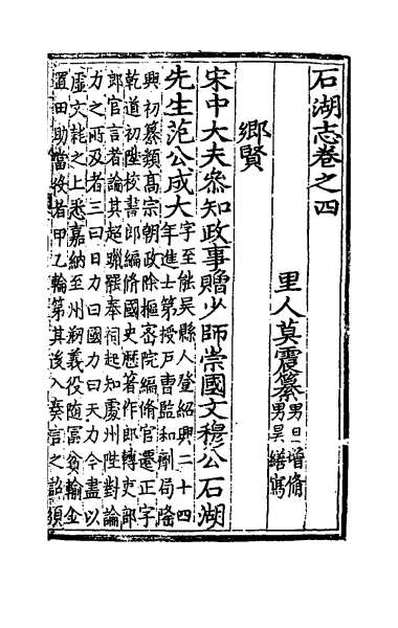 石湖志卷之四
里人莫震纂 男旦增脩
男昊繕寫
鄉賢
宋中大夫叅知政事贈少師崇國文穆公石湖
先生范公成大 字至能吳縣人登紹興二十四
年進士第授戶曹監和劑局隆
興初纂類髙宗朝政除樞密院編脩官遷正字
乾道初陞校書郎編脩國史歷著作郎轉吏部
郎官言者論其超躐罷奉祠起知處州陛對論
力之所及者三曰日力曰國力曰天力今盡以
虛文耗之上悉嘉納至州剏義役随冨貧輸金
置田助當役者甲乙輪第其後入奏言之詔頒